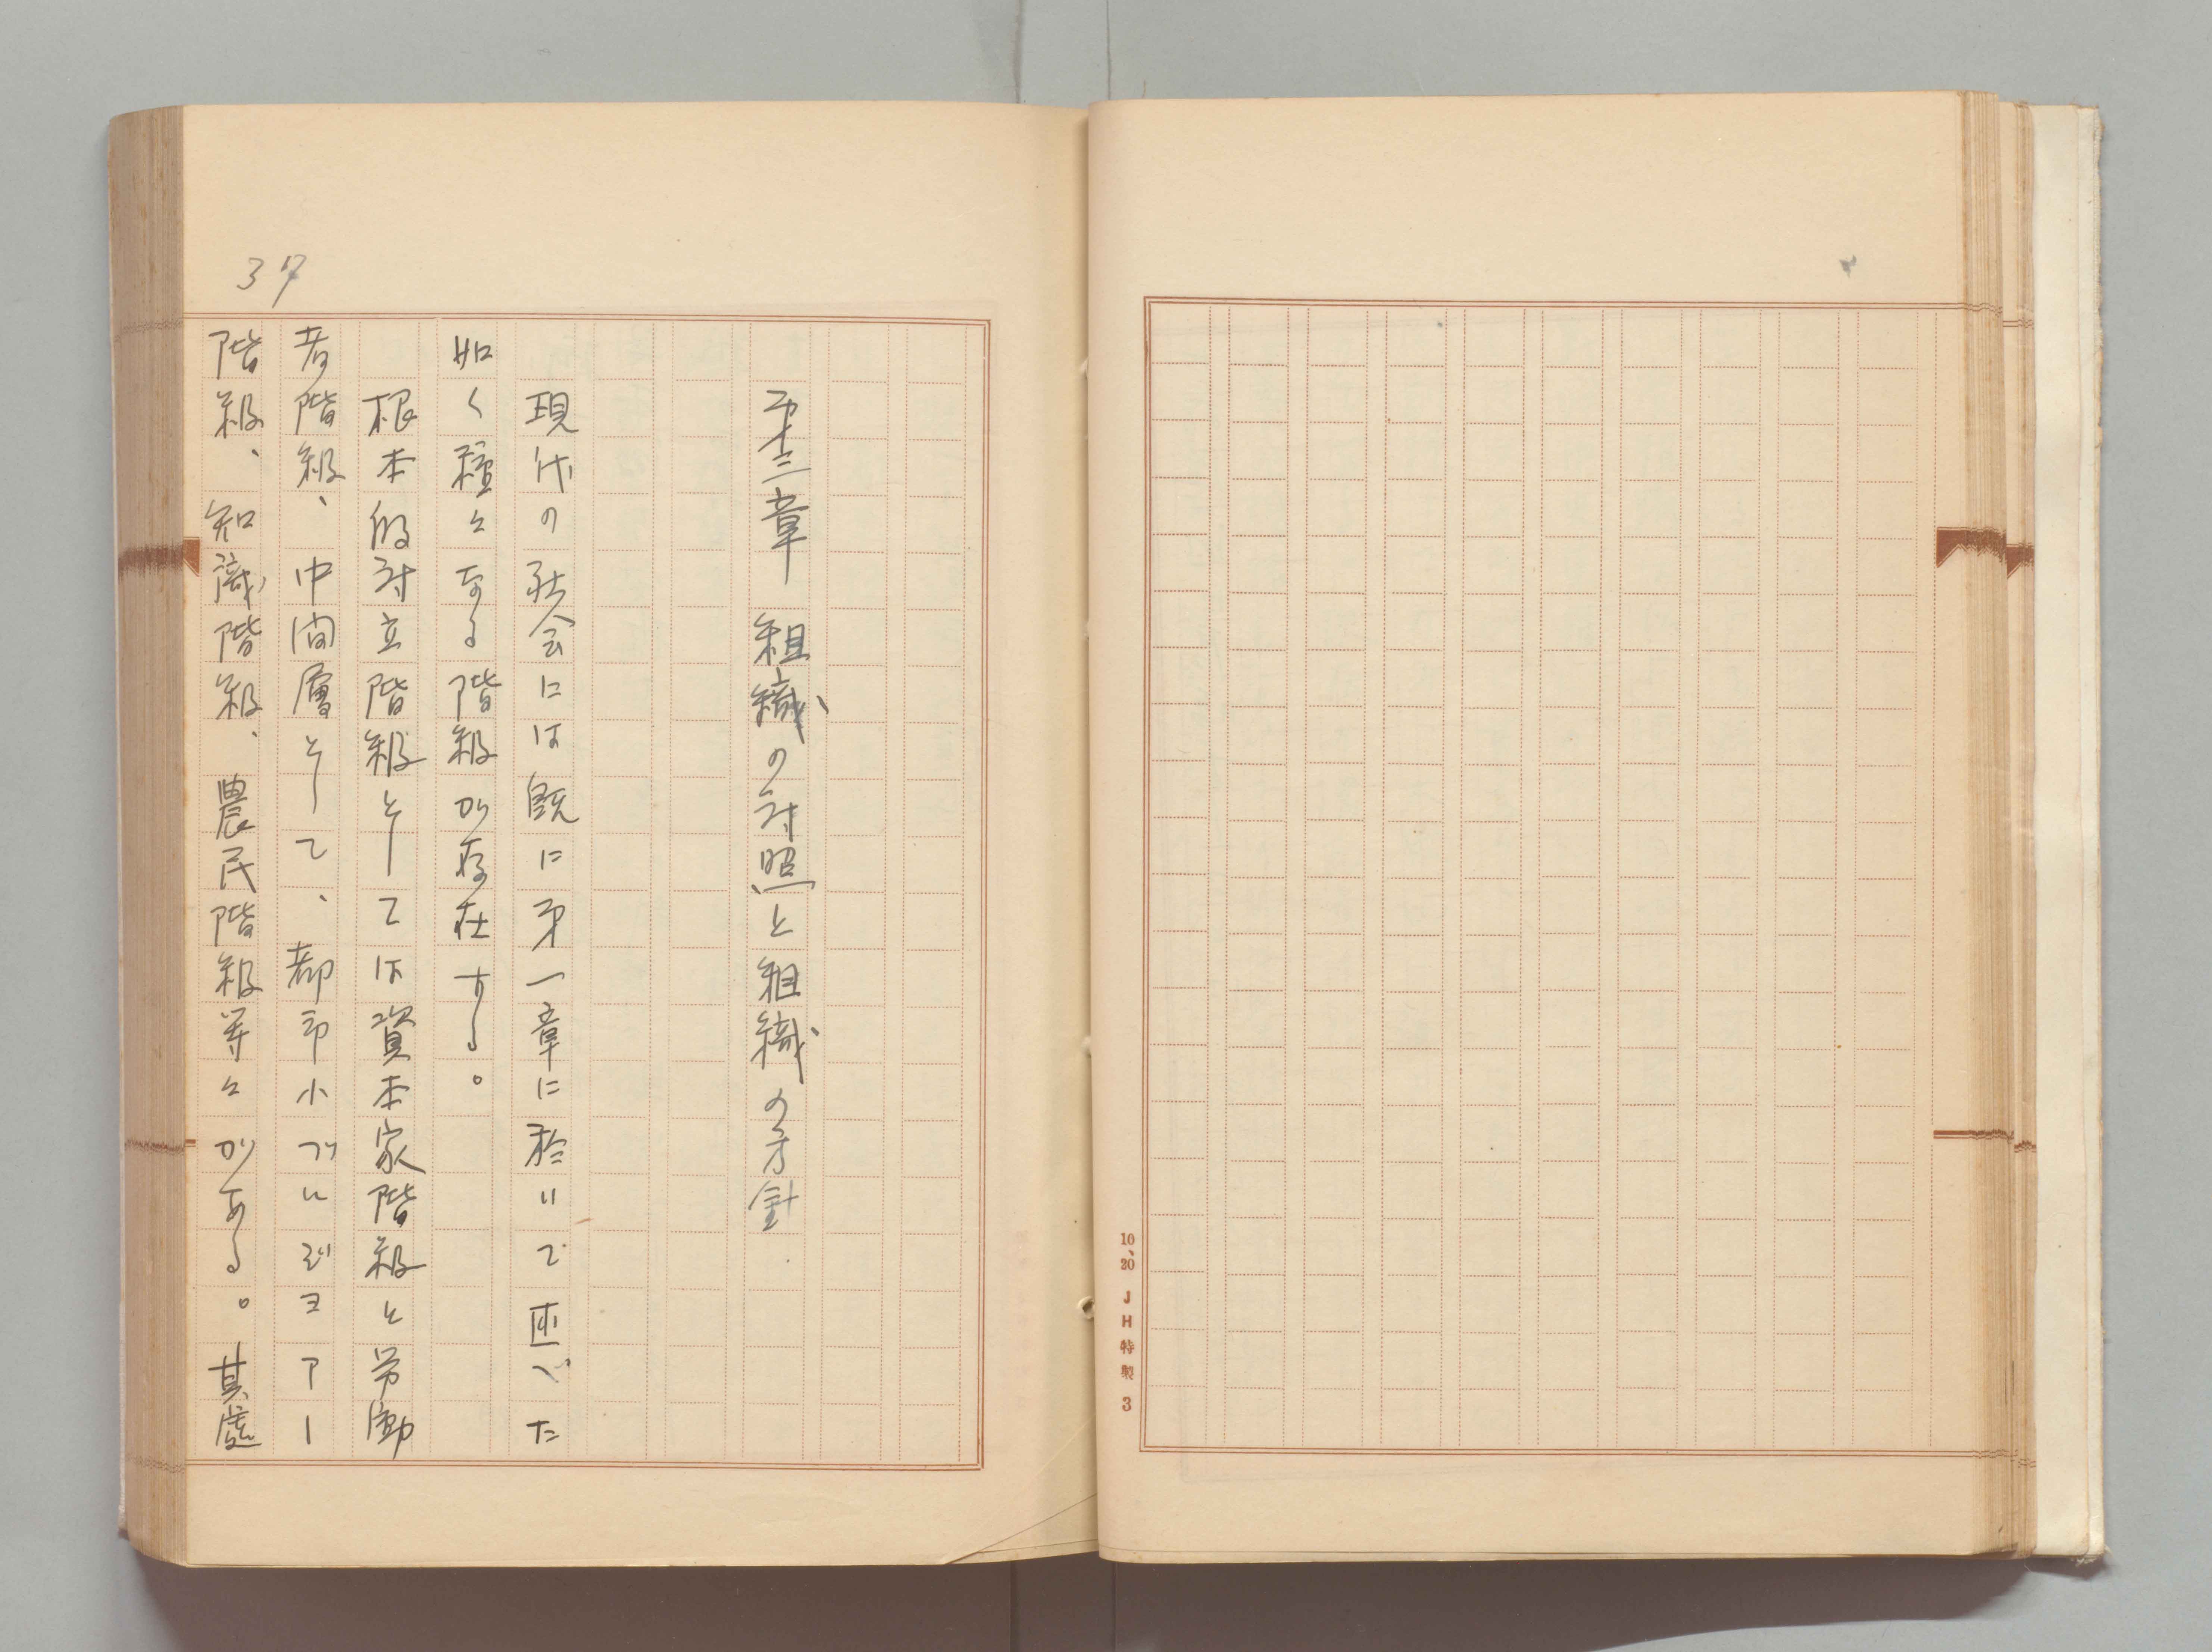 10、20 JH特製 3
37
第三章 組織の対照と組織の方針
現代の社会には既に第一章に於いて述べた
如く種々なる階級が存在する。
根本的対立階級としては資本家階級と労働
者階級、中間層として、都市小ブルジヨアー
階級、知識階級、農民階級等々がある。其處